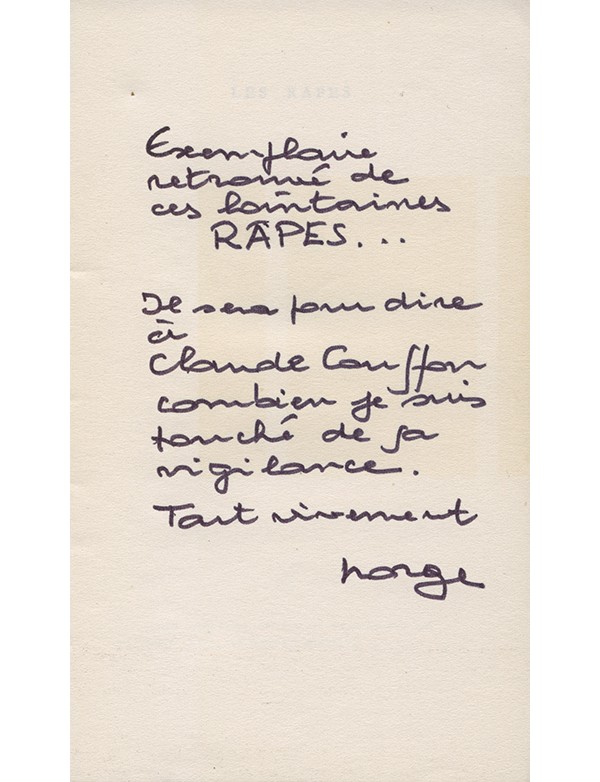 LES RAPES
Exemplaire
retrouvé de
ces lointaines
RÂPES...
Il sera pour dire
à
Claude Couffon
combien je suis
touché de sa
vigilance.
Tout vivement
norge